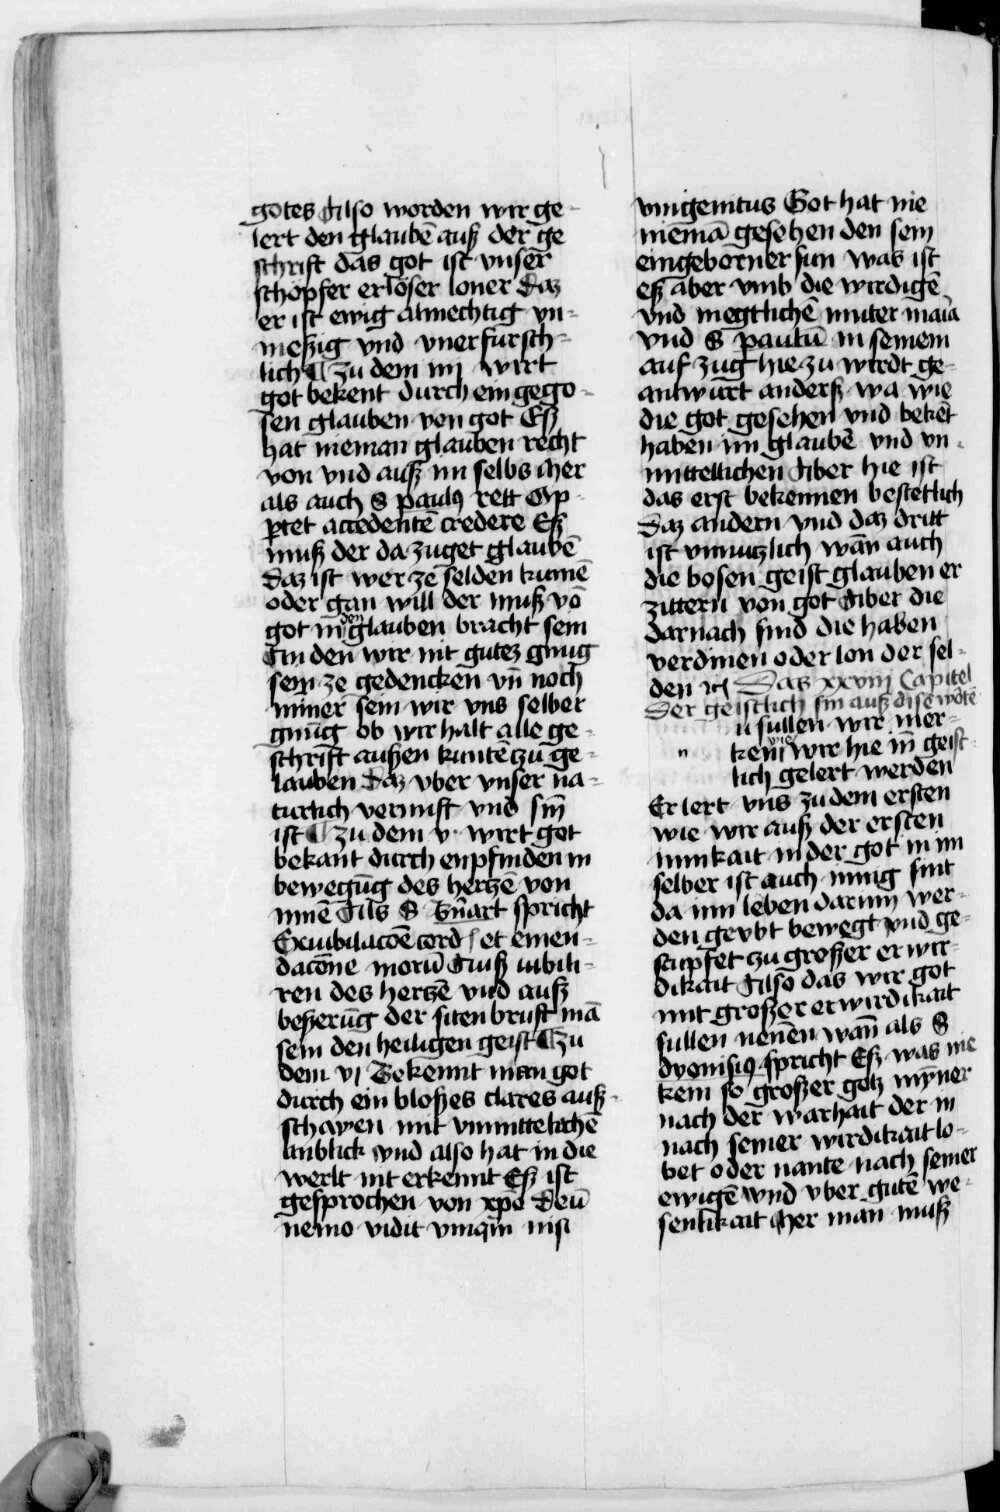 gotes Also worden wir ge-
lert den glaubē auß der ge
schrift das got ist vnser
schöpfer erlöser loner Daz
er ist ewig almechtig vn-
meßig vnd vnerfursch-
lich ¶ Zu dem iiij wirt
got bekent durch ein gego-
sen glauben von got Eß
hat nieman glauben recht
von vnd auß im selbs Mer
als auch S paulꝰ rett Op-
portet accedentē credere Eß
muß der da zu get glaubē
Daz ist wer ze selden kumē
oder gan will der muß vō
got in den glauben bracht sein
An den wir nit gutez gnug
sein ze gedencken vn̄ noch
minner sein wir vns selber
gnug ob wir halt alle ge-
schrift außen kuntē zu ge-
lauben Daz vber vnser na-
turlich vernuft vnd sin̄
ist ¶ Zu dem v wirt got
bekant durch enpfinden in
bewegūg des herczē von
innē Als S b̄nart spricht
Ex iubilacōe cord et emen-
dacōne morū Auß iubili-
ren des herczē vnd auß
beßerūg der siten brust mā
sein den heiligen geist ¶ Zu
dem vj Bekennt man got
durch ein bloßes clares auß-
schawen mit vnmittelichē
anblick vnd also hat in die
werlt nit erkennt Eß ist
gesprochen von xp̄o Deū
nemo vidit vnqm̄ nisi
vnigenitus Got hat nie
niemā gesehen den sein
eingeborner sun Was ist
eß aber vmb die wirdigē
vnd megtlichē muter maria
vnd S paulū in seinem
auf zug hie zu wirdt ge-
antwurt anderß wa wie
die got gesehen vnd bekēt
haben im glaubē vnd vn-
mittellichen Aber hie ist
das erst bekennen bestetlich
Daz andern vnd daz dritt
ist vnnutzlich wān auch
die bosen geist glauben er
zittern von got Aber die
darnach sind die haben
verdinen oder lon der sel-
den rc Das xxviij Capitel
Der geistlich sin auß dise wōtē
u sullen wir mer-
ken wie wir hie in geist-
lich gelert werden
Er lert vns zu dem ersten
wie wir auß der ersten
innikait in der got in im
selber ist auch innig sint
da inn leben darum̄ wer-
den geubt bewegt vnd ge-
stupfet zu großer er wir-
dikait Also das wir got
mit großer erwirdikait
sullen nenen wan̄ als S
dyonisiꝰ spricht Eß was nie
kein so großer gotz mȳner
nach der warhait der in
nach seiner wirdikait lo-
bet oder nante nach seiner
ewigē vnd vber gutē we-
senlikait Mer man muß